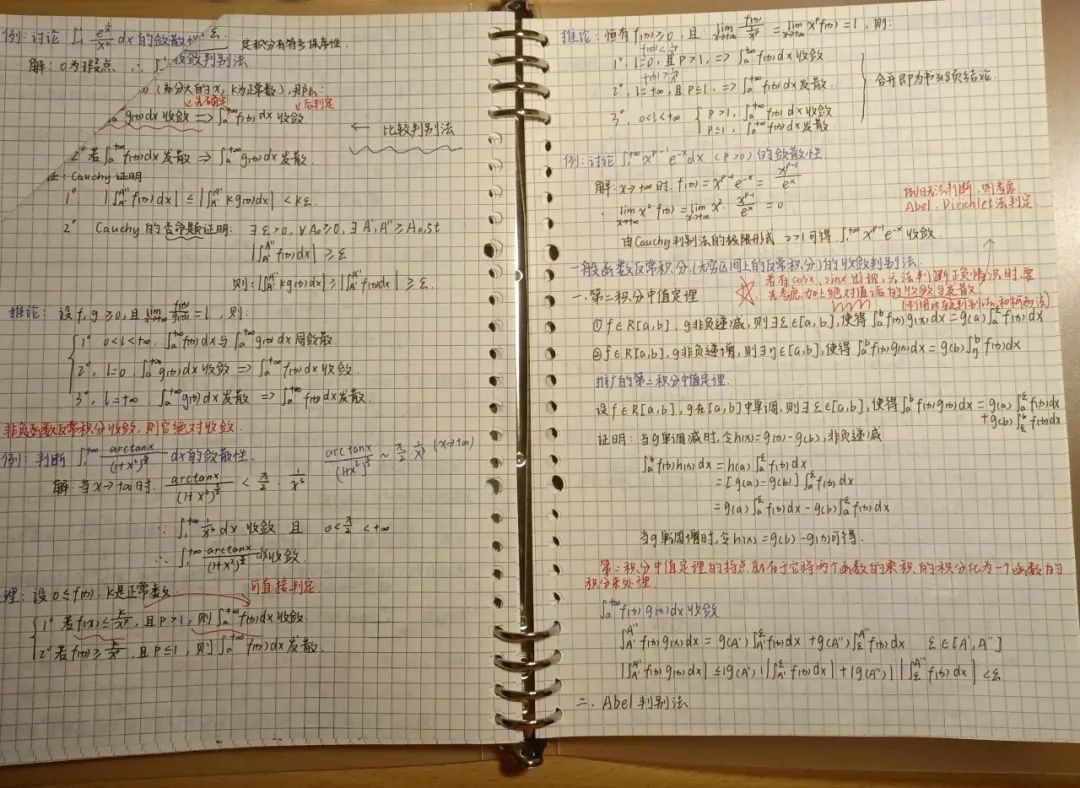 例: 讨论 ∫₋₁ e^(1/x)/x² dx 的敛散
定积分有符号保序性.
解: 0为瑕点 ∴ ∫
收敛判别法
(充分大的x, K为正常数), 那么:
先确定 后判定
g(x)dx 收敛 => ∫ₐ^{+∞} f(x)dx 收敛
← 比较判别法
2° 若∫ₐ^{+∞} f(x)dx 发散 => ∫ₐ^{+∞} g(x)dx 发散.
证: Cauchy 证明
1° |∫_{A'}^{A''} f(x)dx| ≤ |∫_{A'}^{A''} kg(x)dx| < kε.
2° Cauchy 的否命题证明: ∃ε>0, ∀A₀≥0, ∃A', A''≥A₀, st
|∫_{A'}^{A''} f(x)dx| ≥ ε
则: |∫_{A'}^{A''} kg(x)dx| ≥ |∫_{A'}^{A''} f(x)dx| ≥ ε.
推论: 设 f, g ≥0, 且 lim_{x→+∞} f(x)/g(x) = l, 则:
1° 0<l<+∞. ∫ₐ^{+∞} f(x)dx 与 ∫ₐ^{+∞} g(x)dx 同敛散.
2°, l=0. ∫ₐ^{+∞} g(x)dx 收敛 => ∫ₐ^{+∞} f(x)dx 收敛.
3°, l=+∞. ∫ₐ^{+∞} g(x)dx 发散 => ∫ₐ^{+∞} f(x)dx 发散.
非负函数反常积分收敛, 则它绝对收敛.
例: 判断 ∫₁^{+∞} arctanx/(1+x²)^{3/2} dx 的敛散性.
arctanx/(1+x²)^{3/2} ~ π/2 · 1/x³ (x→+∞)
解 当x→+∞时. arctanx/(1+x²)^{3/2} < π/2 · 1/x³
∵ ∫₁^{+∞} 1/x³ dx 收敛 且 0<π/2<+∞
∴ ∫₁^{+∞} arctanx/(1+x²)^{3/2} dx 收敛.
理: 设 0≤f(x), K是正常数.
可直接判定
1° 若 f(x) ≤ K/x^p, 且 p>1, 则 ∫ₐ^{+∞} f(x)dx 收敛.
2° 若 f(x) ≥ K/x^p, 且 p≤1, 则 ∫ₐ^{+∞} f(x)dx 发散.
推论: 恒有 f(x)≥0, 且 lim_{x→+∞} f(x)/(1/x^p) = lim_{x→+∞} x^p f(x) = l, 则:
1°, l=0, 且 p>1, => ∫ₐ^{+∞} f(x)dx 收敛
2°, l=+∞, 且 p≤1, => ∫ₐ^{+∞} f(x)dx 发散.
合并即为书348页结论.
3°, 0<l<+∞ { p>1, ∫ₐ^{+∞} f(x)dx 收敛
p≤1, ∫ₐ^{+∞} f(x)dx 发散
例: 讨论 ∫₁^{+∞} x^{p-1} e^{-x} dx (p>0) 的敛散性.
解: x→+∞时. f(x) = x^{p-1} e^{-x} = x^{p-1}/e^x
lim_{x→+∞} x² f(x) = lim_{x→+∞} x² · x^{p-1}/e^x = 0
由Cauchy判别法的极限形式 2>1 可得 ∫₁^{+∞} x^{p-1} e^{-x} 收敛.
依旧无法判断, 则考虑
Abel、Dirichlet法判定.
一般函数反常积分 (无穷区间上的反常积分) 的收敛判别法
若有cosx, sinx出现, 无法判断正负情况时, 要
先考虑加上绝对值后的收敛与发散
(利用比较判别法和柯西法)
一. 第二积分中值定理
① f∈R[a,b], g非负递减, 则∃ξ∈[a,b], 使得∫ₐ^b f(x)g(x)dx = g(a)∫ₐ^ξ f(x)dx
② f∈R[a,b], g非负递增, 则∃η∈[a,b], 使得∫ₐ^b f(x)g(x)dx = g(b)∫_η^b f(x)dx
推广的第二积分中值定理.
设 f∈R[a,b], g在[a,b]中单调, 则∃ξ∈[a,b], 使得∫ₐ^b f(x)g(x)dx = g(a)∫ₐ^ξ f(x)dx
+g(b)∫_ξ^b f(x)dx
证明: 当g单调减时, 令h(x)=g(x)-g(b), 非负递减
∫ₐ^b f(x)h(x)dx = h(a)∫ₐ^ξ f(x)dx
= [g(a)-g(b)]∫ₐ^ξ f(x)dx
= g(a)∫ₐ^ξ f(x)dx - g(b)∫ₐ^ξ f(x)dx
当g单调增时, 令h(x)=g(b)-g(x)可得.
第二积分中值定理的特点就在于它将两个函数的乘积的积分化为一个函数的
积分来处理
∫ₐ^{+∞} f(x)g(x)dx 收敛
∫_{A'}^{A''} f(x)g(x)dx = g(A')∫_{A'}^ξ f(x)dx + g(A'')∫_ξ^{A''} f(x)dx ξ∈[A', A'']
|∫_{A'}^{A''} f(x)g(x)dx| ≤ |g(A')||∫_{A'}^ξ f(x)dx| + |g(A'')||∫_ξ^{A''} f(x)dx| < ε
二、Abel 判别法